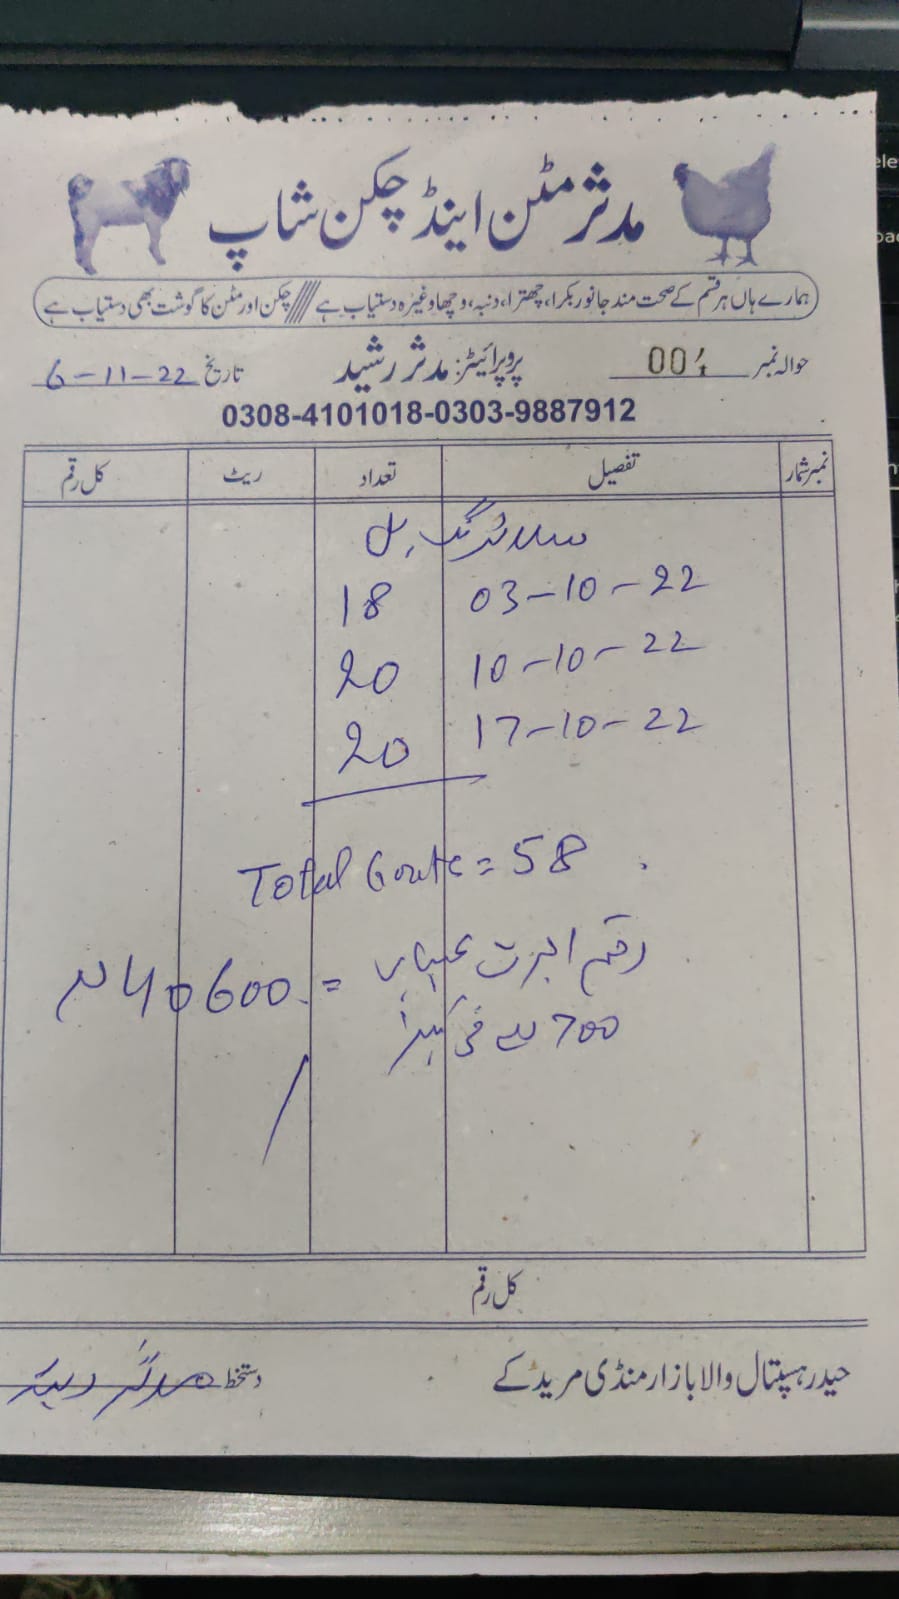 مدثر مٹن اینڈ چکن شاپ
ہمارے ہاں ہر قسم کے صحت مند جانور بکرا، چھترا، دنبہ، وچھا وغیرہ دستیاب ہے //// چکن اور مٹن کا گوشت بھی دستیاب ہے
حوالہ نمبر 001 پروپرائیٹر: مدثر رشید تاریخ 6-11-22
0308-4101018-0303-9887912
نمبر شمار تفصیل تعداد ریٹ کل رقم
سلاٹرنگ بل
03-10-22 18
10-10-22 20
17-10-22 20
Total Goats = 58
رقم اجرت = 40600
700 فی بکرا
کل رقم
حیدر ہسپتال والا بازار منڈی مریدکے دستخط